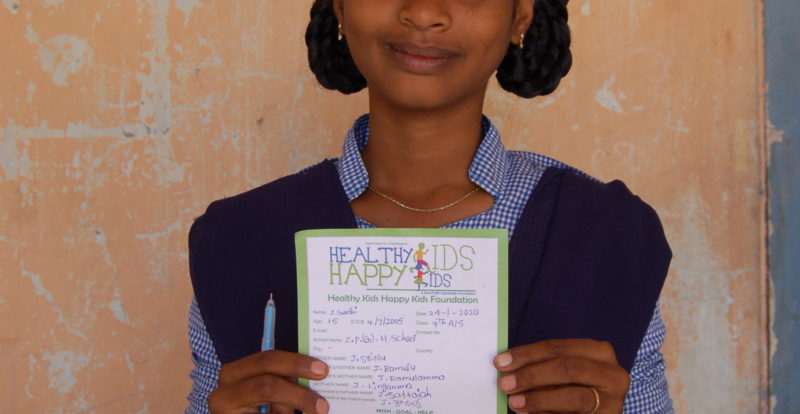 HEALTHY KIDS
HAPPY KIDS
Healthy Kids Happy Kids Foundation
Name: J. Date: 24-1-2020
Age: 15 D O B 4/7/2005 Class: 9th A/S
E-mail: Contact No
School Name: J.P.(G). H School
City: - Country:
FATHER NAME: J. Srinu
FATHER NAME: J. Ramulu
MOTHER NAME: J. Ramulamma
FATHER NAME: J. Lingamma
J. Sattaiah
MOTHER NAME: J.
WISH - GOAL - HELP